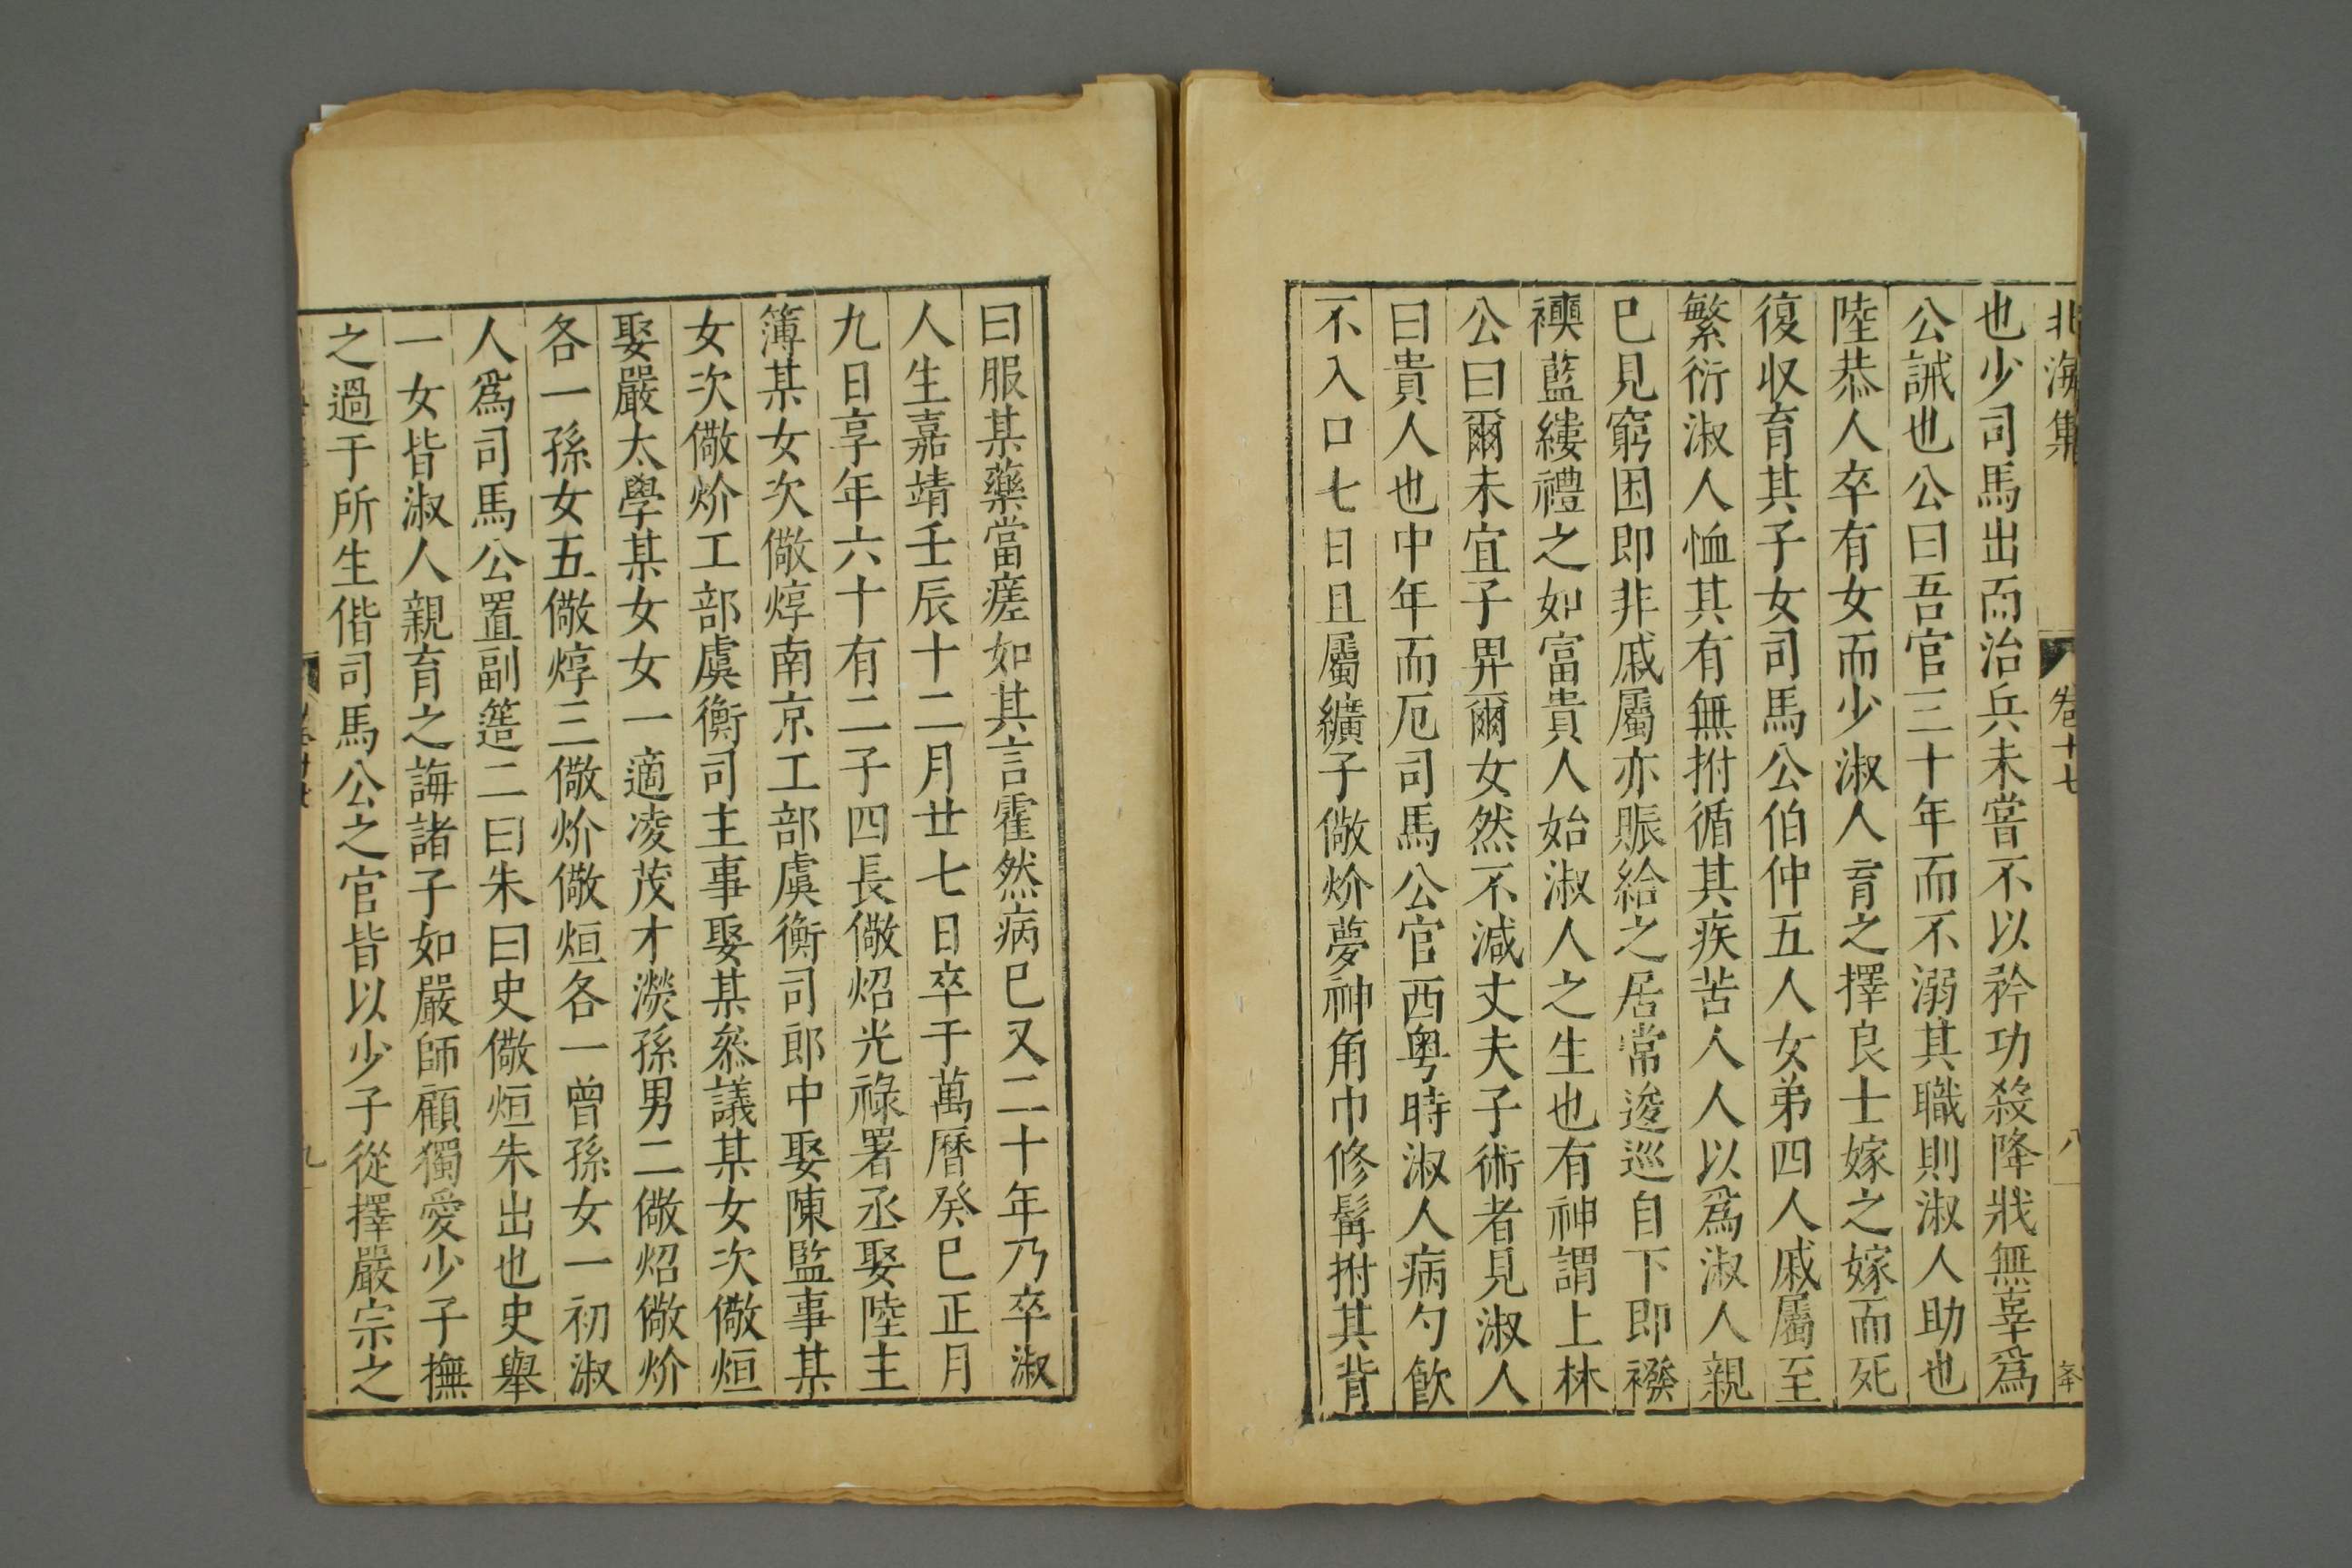 北海集 卷十七 八
也少司馬出而治兵未嘗不以矜功殺降戕無辜爲
公誡也公曰吾官三十年而不溺其職則淑人助也
陸恭人卒有女而少淑人育之擇良士嫁之嫁而死
復収育其子女司馬公伯仲五人女弟四人戚屬至
繁衍淑人恤其有無拊循其疾苦人人以爲淑人親
已見窮困即非戚屬亦賑給之居常逡巡自下即襏
襖藍縷禮之如富貴人始淑人之生也有神謂上林
公曰爾未宜子畀爾女然不減丈夫子術者見淑人
曰貴人也中年而厄司馬公官西粵時淑人病勺飮
不入口七日且屬纊子儆炌夢神角巾修髯拊其背
曰服某藥當瘥如其言霍然病已又二十年乃卒淑
人生嘉靖壬辰十二月廿七日卒于萬曆癸巳正月
九日享年六十有二子四長儆炤光祿署丞娶陸主
簿某女次儆焞南京工部虞衡司郎中娶陳監事某
女次儆炌工部虞衡司主事娶某叅議某女次儆烜
娶嚴太學某女女一適凌茂才濙孫男二儆炤儆炌
各一孫女五儆焞三儆炌儆烜各一曾孫女一初淑
人爲司馬公置副簉二曰朱曰史儆烜朱出也史舉
一女皆淑人親育之誨諸子如嚴師顧獨愛少子撫
之過于所生偕司馬公之官皆以少子從擇嚴宗之
九